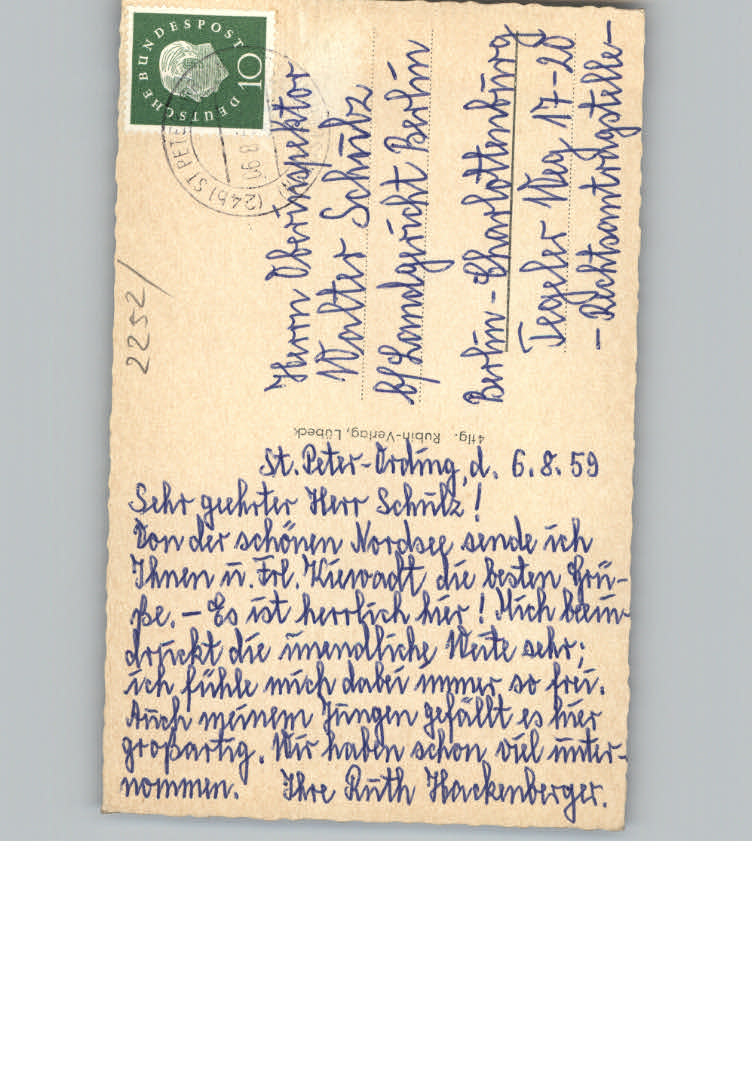 DEUTSCHE BUNDESPOST
10
(24b) ST PETE
2252/
Herrn Oberinspektor
Walter Schulz
b/Landgericht Berlin
Berlin-Charlottenburg
Tegeler Weg 17-20
-Rechtsantragstelle-
41tg. Rubin-Verlag, Lübeck
St. Peter-Ording, d. 6.8.59
Sehr geehrter Herr Schulz!
Von der schönen Nordsee sende ich
Ihnen u. Frl. Kiewadt die besten Grü-
ße. – Es ist herrlich hier! Mich beein-
druckt die unendliche Weite sehr;
ich fühle mich dabei immer so frei.
Auch meinem Jungen gefällt es hier
großartig. Wir haben schon viel unter-
nommen. Ihre Ruth Hackenberger.